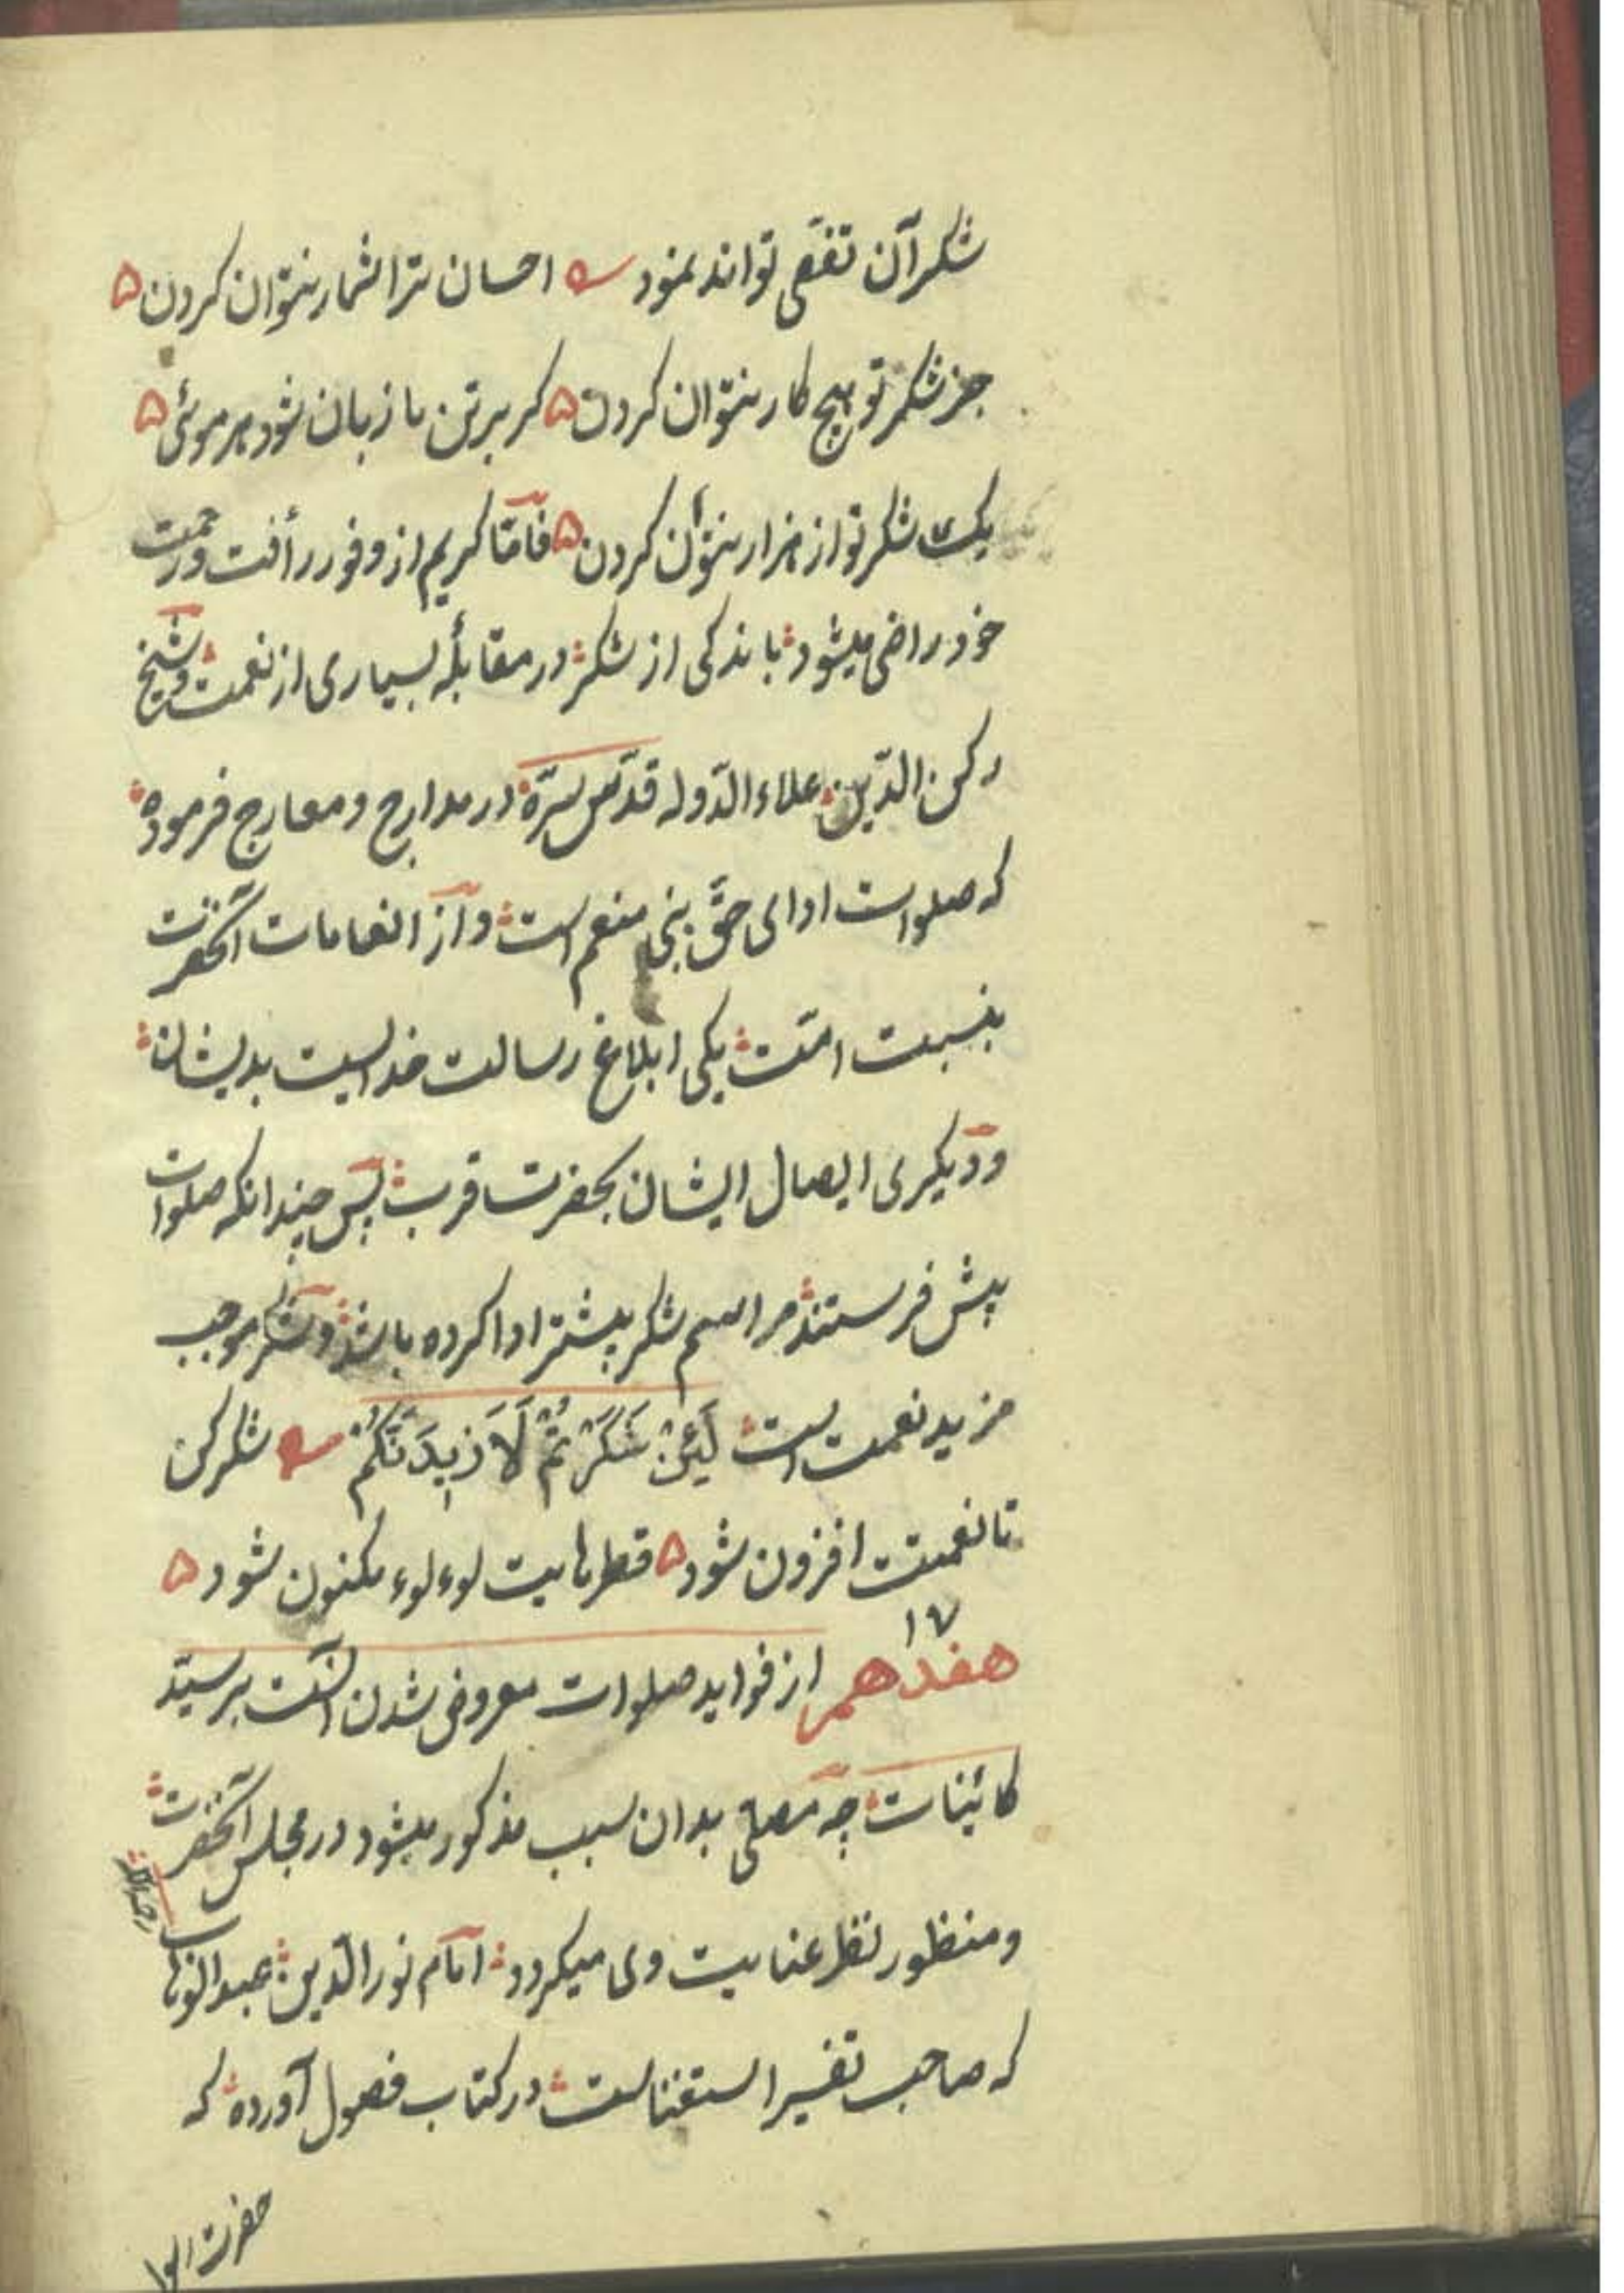 شکر آن تفصّی تواند نمود ؎ احسان ترا شمار نتوان کردن ۵
جز شکر تو هیچ کار نتوان کردن ۵ کر بر تن ما زبان شود هر موئی ۵
یک شکر تو از هزار نتوان کردن ۵ فامّا کریم از وفور رأفت ورحمت
خود راضی میشود باندکی از شکر در مقابلهٔ بسیاری از نعمت وشیخ
رکن الدّین علاء الدّوله قدّس سرّه در مدارج ومعارج فرموده
که صلوات ادای حقّ نبی منعم است واز انعامات آنحضرت
بنسبت امّت یکی ابلاغ رسالت خداست بدیشان
ودیکری ایصال ایشان بحضرت قرب پس چندانکه صلوات
پیش فرستند مراسم شکر پیشتر ادا کرده باشند وشکر موجب
مزید نعمت است لَئِنْ شَکَرْتُمْ لَاَزِیدَنَّکُمْ ؎ شکر کن
تا نعمتت افزون شود ۵ قطرهایت لوءلوء مکنون شود ۵
۱۷
هفدهم از فواید صلوات معروض شدن انست بر سیّد
کائینات چه مصلّی بدان سبب مذکور میشود در مجلس آنحضرت
ومنظور نظر عنایت وی میکردد امام نور الدّین عبد الوهاب رحمه الله
که صاحب تفسیر استغناست در کتاب فصول آورده که
حضرت